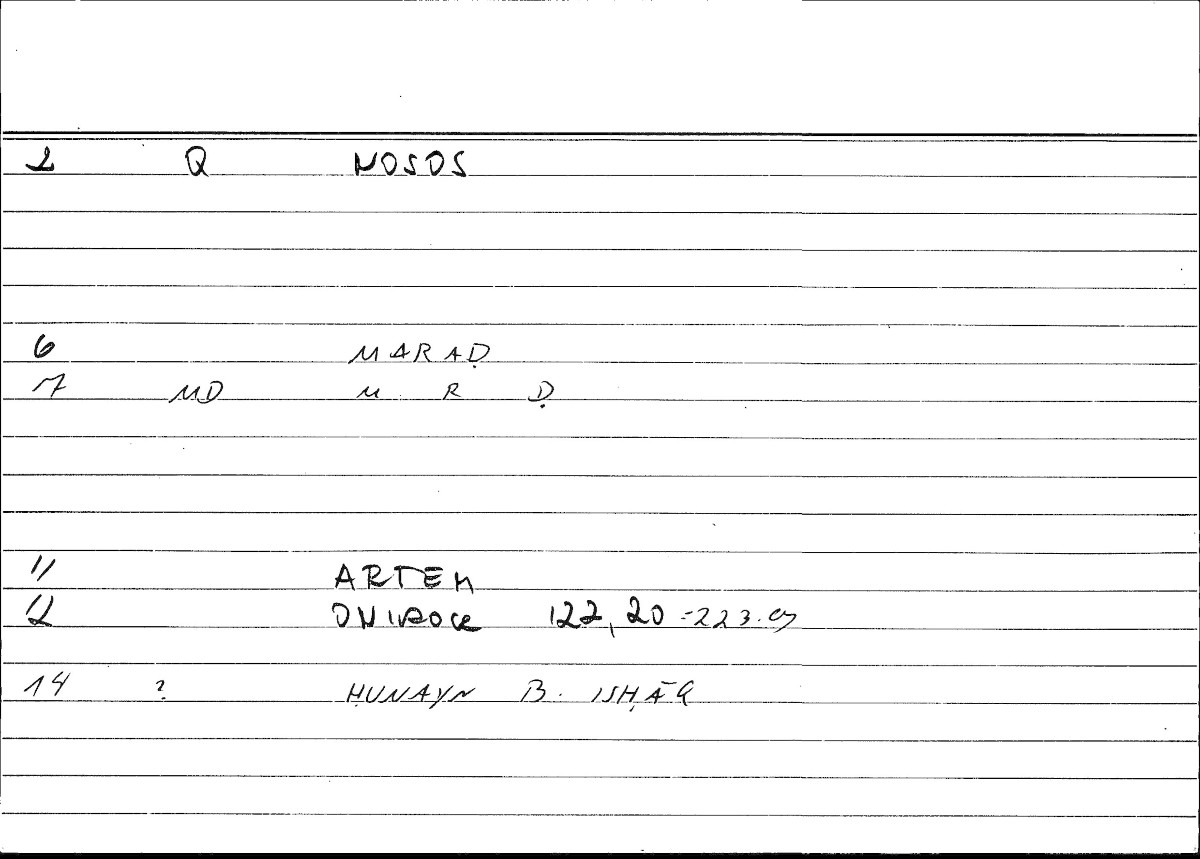 2 Q NOSOS
6 MARAḌ
7 MD M R Ḍ
11 ARTEM
12 ONIROCR 122,20 = 223.9
14 ? ḤUNAYN B. ISḤĀQ